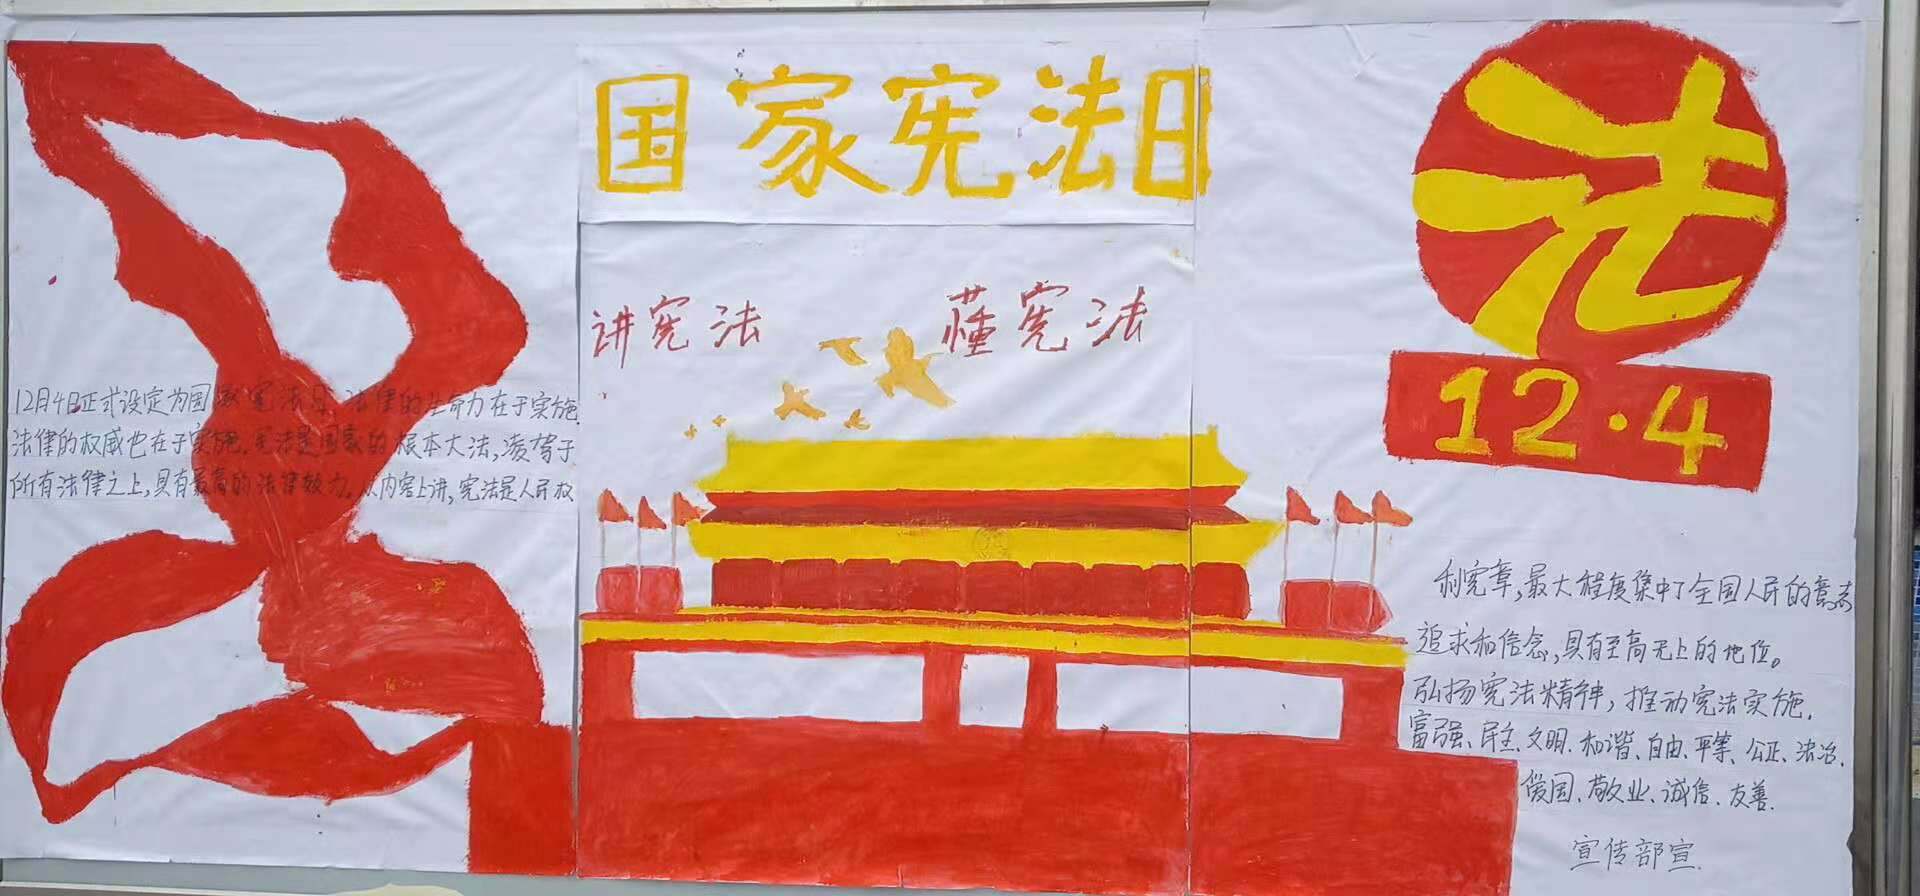 国家宪法日
讲宪法 懂宪法
12月4日正式设定为国家宪法日,法律的生命力在于实施.
法律的权威也在于实施.宪法是国家的根本大法,凌驾于
所有法律之上,具有最高的法律效力.从内容上讲,宪法是人民权
法
12·4
利宪章,最大程度集中了全国人民的意志
追求和信念,具有至高无上的地位。
弘扬宪法精神,推动宪法实施.
富强、民主、文明、和谐、自由、平等、公正、法治、
爱国、敬业、诚信、友善.
宣传部宣.